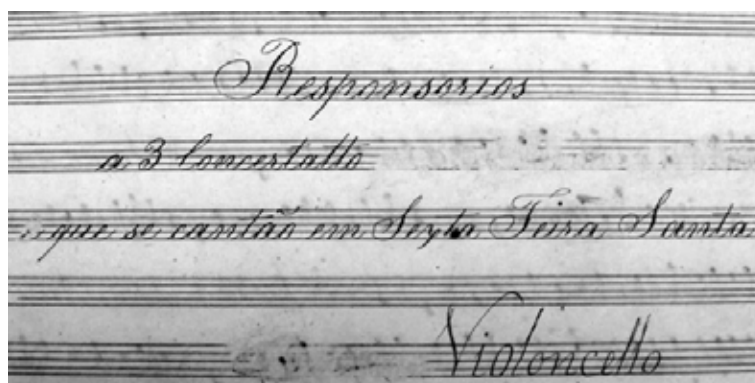 Responsorios
a 3 Concertatto
que se cantão em Sexta Feira Santa
Violoncello